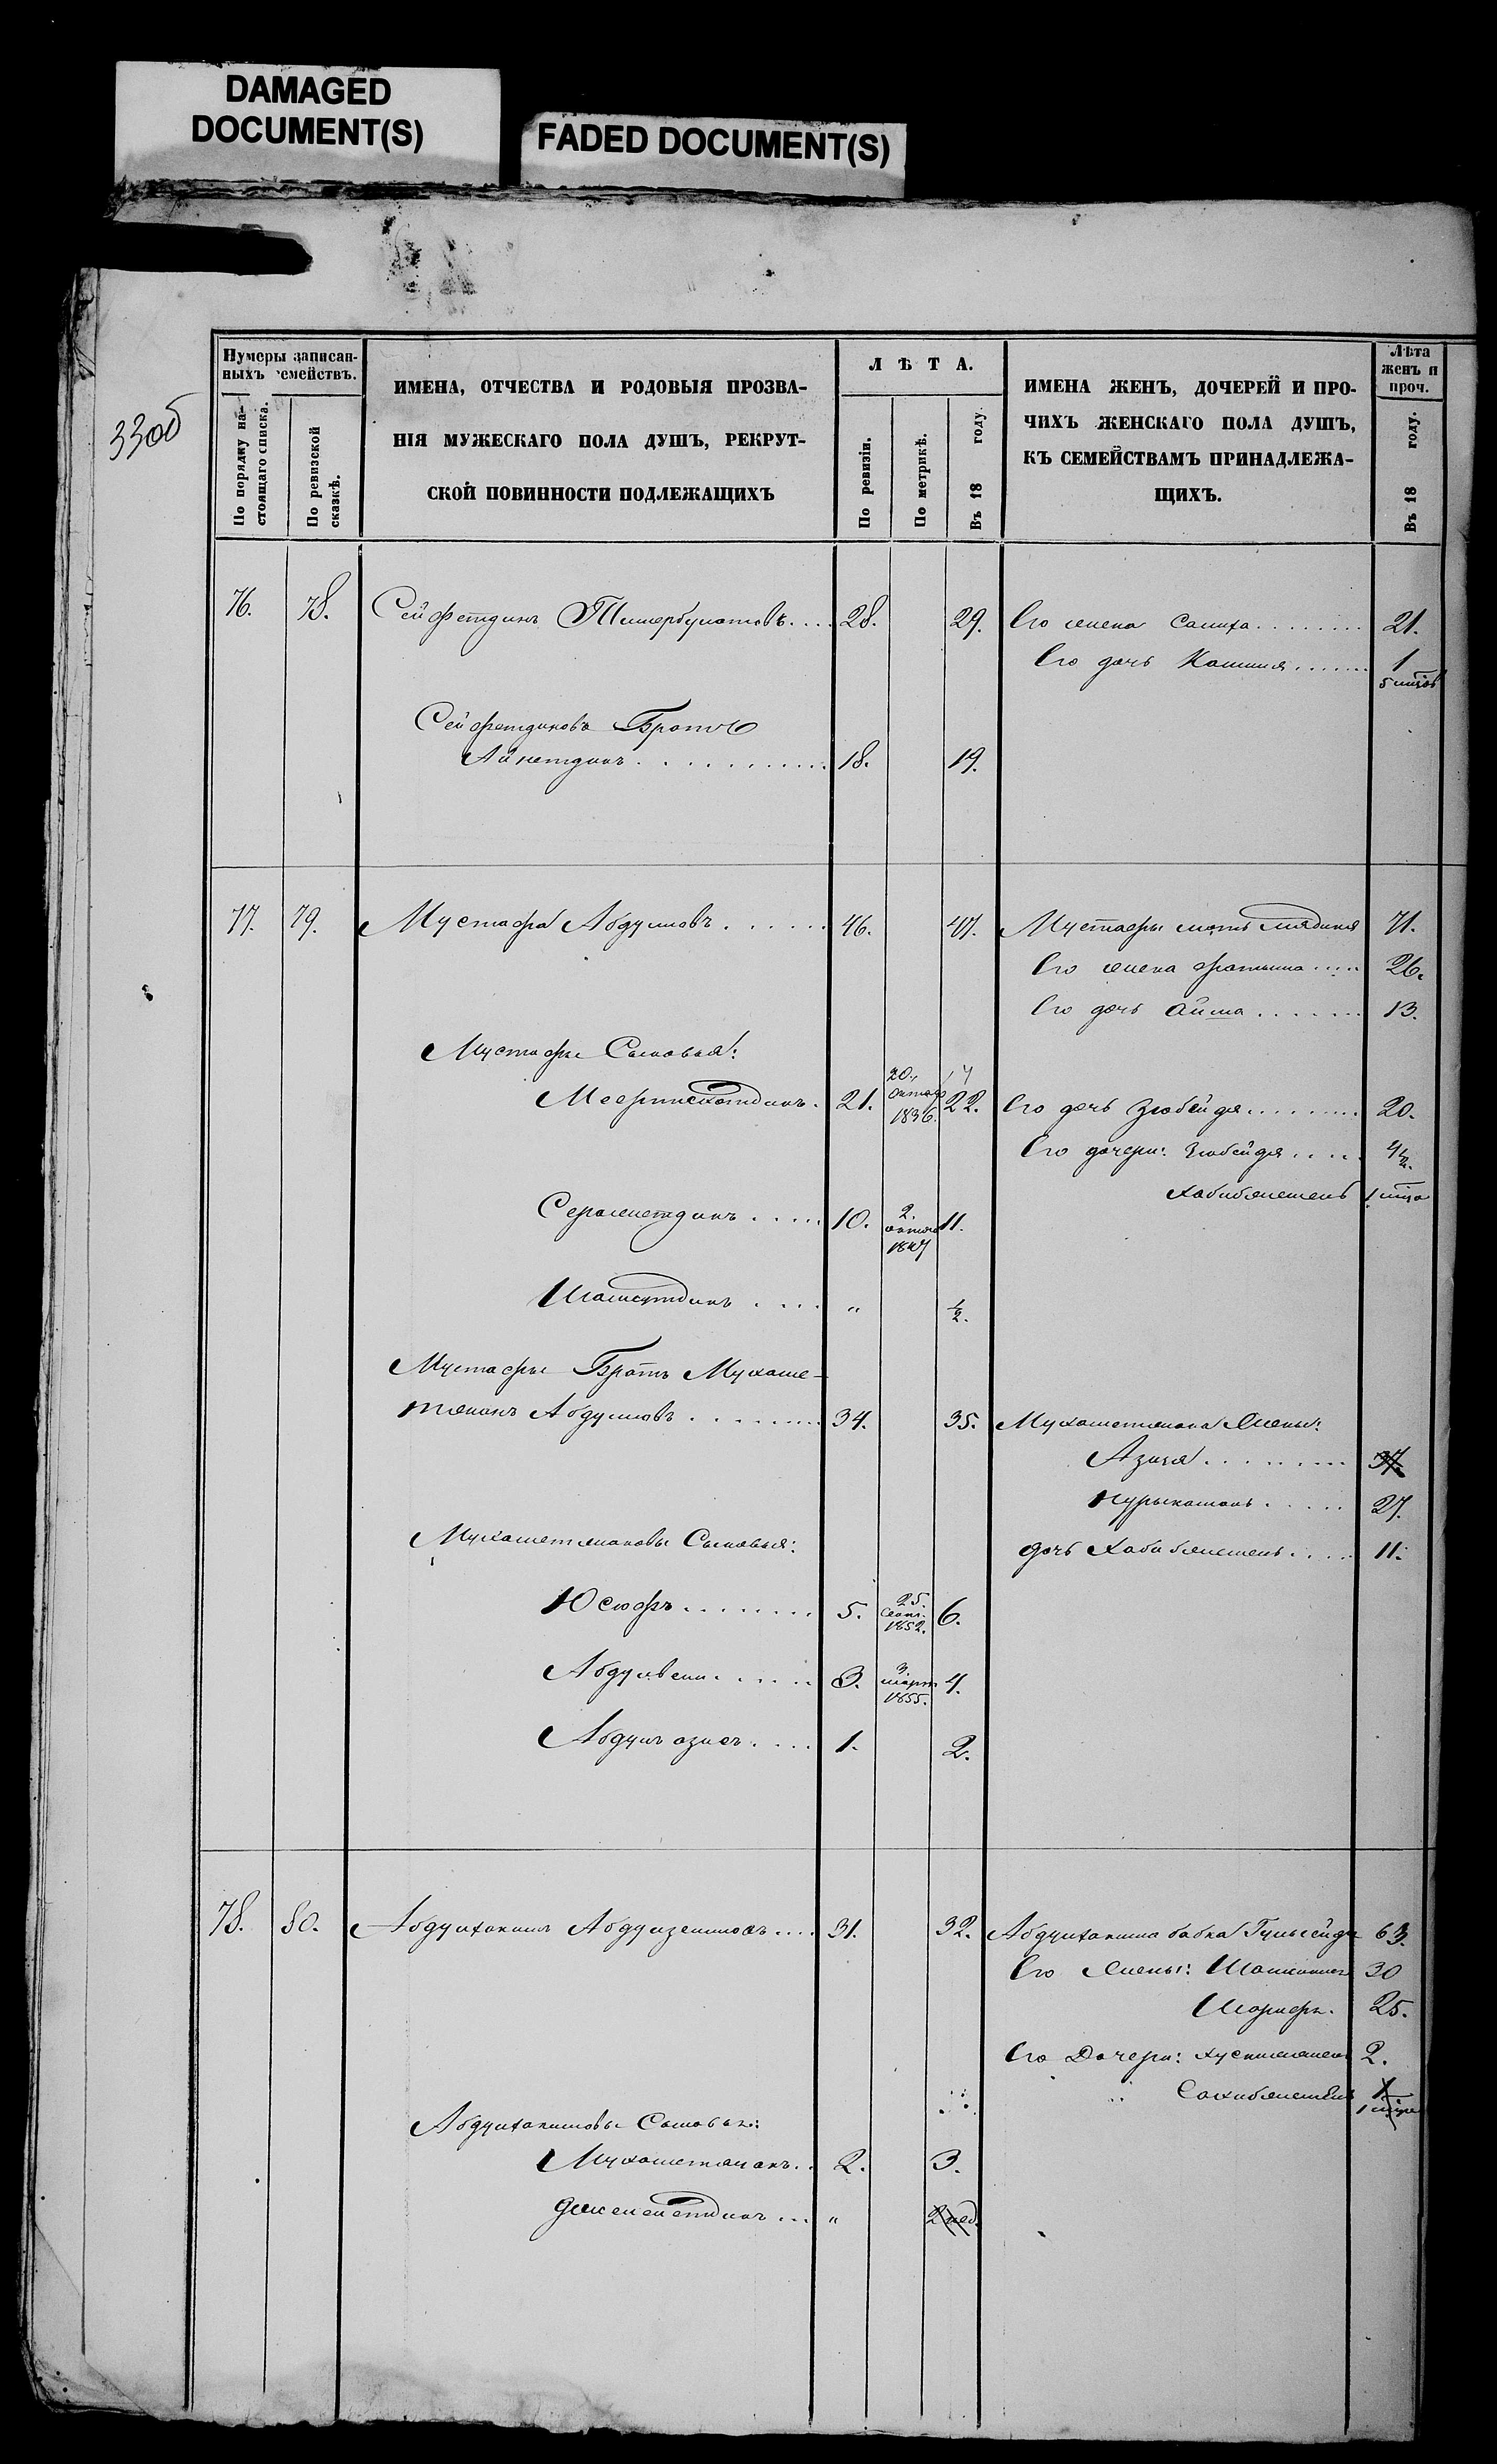 DAMAGED
DOCUMENT(S)
FADED DOCUMENT(S)
33об
Нумеры записан-
ныхъ семействъ.
По порядку на-
стоящаго списка.
По ревизской
сказкѣ.
ИМЕНА, ОТЧЕСТВА И РОДОВЫЯ ПРОЗВА-
НІЯ МУЖЕСКАГО ПОЛА ДУШЪ, РЕКРУТ-
СКОЙ ПОВИННОСТИ ПОДЛЕЖАЩИХЪ
ЛѢТА.
По ревизіи.
По метрикѣ.
Въ 18 году.
ИМЕНА ЖЕНЪ, ДОЧЕРЕЙ И ПРО-
ЧИХЪ ЖЕНСКАГО ПОЛА ДУШЪ,
КЪ СЕМЕЙСТВАМЪ ПРИНАДЛЕЖА-
ЩИХЪ.
Лѣта
женъ и
проч.
Въ 18 году.
76. 78. Сейфетдинъ Тимербулатовъ.... 28. 29. Его жена Салиха........ 21.
Его дочь ...... 1
Сейфетдиновъ Братъ
Айнетдинъ........... 18. 19.
77. 79. Мустафа Абдуловъ...... 46. 47. Мустафы мать 71.
Его жена Фатыма.... 26.
Его дочь Айша....... 13.
Мустафы Сыновья:
21. 20. Октяб. 1836. 17 22. Его дочь Зюбейдя....... 20.
Его дочери: Зюбейдя.....
Хабибямень
..... 10. 2. 1847 11.
.... " ½.
Мустафы Братъ Мухаме-
тянанъ Абдуловъ........ 34. 35. Мухаметянана Жены:
Азиза......... 37.
Нурыкамалъ..... 27.
Мухаметянановы Сыновья: дочь ..... 11.
Юсюфъ........ 5. 25. Сент. 1852. 6.
...... 3. 3. март. 1855. 4.
Абдулъ азисъ.... 1. 2.
78. 80. Абдулхакимъ Абдулзелиловъ.... 31. 32. Абдулхакима бабка 63.
Его Жены: 30
25.
Его Дочери: 2.
1
Абдулхакимовы Сыновья:
Мухаметянанъ.. 2. 3.
... " 2 нед.